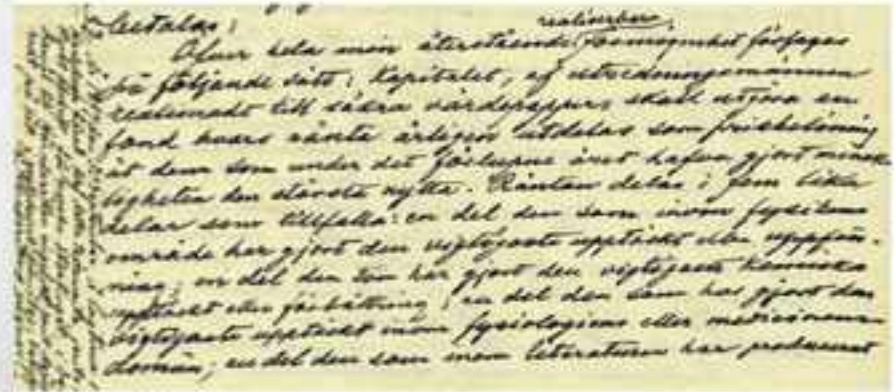 betalas;
realiserbara
Öfver hela min återstående förmögenhet förfoges
på följande sätt: Kapitalet, af utredningsmännen
realiserade till säkra värdepapper, skall utgöra en
fond hvars ränta årligen utdelas som prisbelöning
åt dem som under det förlupne året hafva gjort mensk-
ligheten den största nytta. Räntan delas i fem lika
delar som tillfalla: en del den som inom fysikens
område har gjort den vigtigaste upptäckt eller uppfin-
ning; en del den som har gjort den vigtigaste kemiska
upptäckt eller förbättring; en del den som har gjort den
vigtigaste upptäckt inom fysiologiens eller medicinens
domän; en del den som inom literaturen har producerat